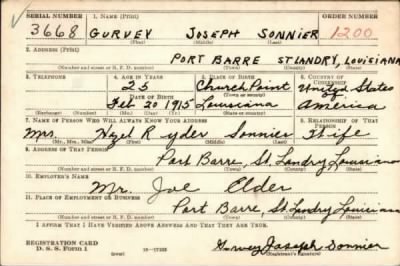 SERIAL NUMBER 1. NAME (Print) ORDER NUMBER
3668 GURVEY JOSEPH SONNIER 1200
(First) (Middle) (Last)
2. ADDRESS (Print)
PORT BARRE ST LANDRY, LOUISIANA
(Number and street or R. F. D. number) (Town) (County) (State)
3. TELEPHONE 4. AGE IN YEARS 5. PLACE OF BIRTH 6. COUNTRY OF CITIZENSHIP
25 Church Point United States
DATE OF BIRTH (Town or county) of
Feb 20 1915 Louisiana America
(Exchange) (Number) (Mo.) (Day) (Yr.) (State or country)
7. NAME OF PERSON WHO WILL ALWAYS KNOW YOUR ADDRESS 8. RELATIONSHIP OF THAT PERSON
Mrs. Hazel Ryder Sonnier Wife
(Mr., Mrs., Miss) (First) (Middle) (Last)
9. ADDRESS OF THAT PERSON
Port Barre, St. Landry Louisiana
(Number and street or R. F. D. number) (Town) (County) (State)
10. EMPLOYER'S NAME
Mr. Joe Elder
11. PLACE OF EMPLOYMENT OR BUSINESS
Port Barre, St Landry Louisiana
(Number and street or R. F. D. number) (Town) (County) (State)
I AFFIRM THAT I HAVE VERIFIED ABOVE ANSWERS AND THAT THEY ARE TRUE.
REGISTRATION CARD
D. S. S. Form 1 (over) Gurvey Joseph Sonnier
(Registrant's signature)